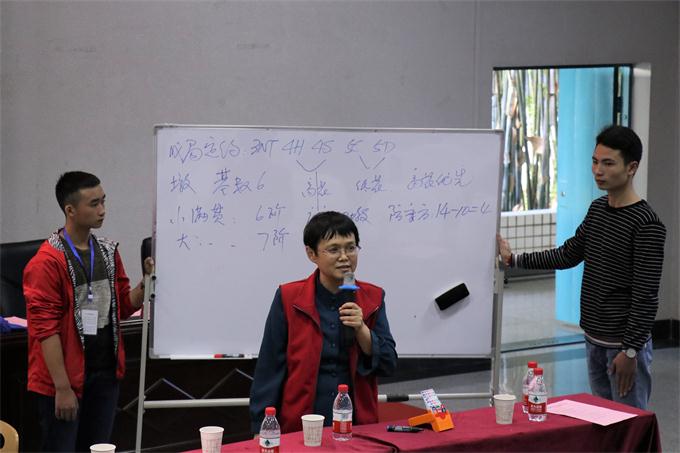 成局定约: 3NT 4H 4S 5C 5D
墩 基数6 高花 低花 高花优先
小满贯: 6阶 墩 防守方: 14-10=4
大: .. 7阶